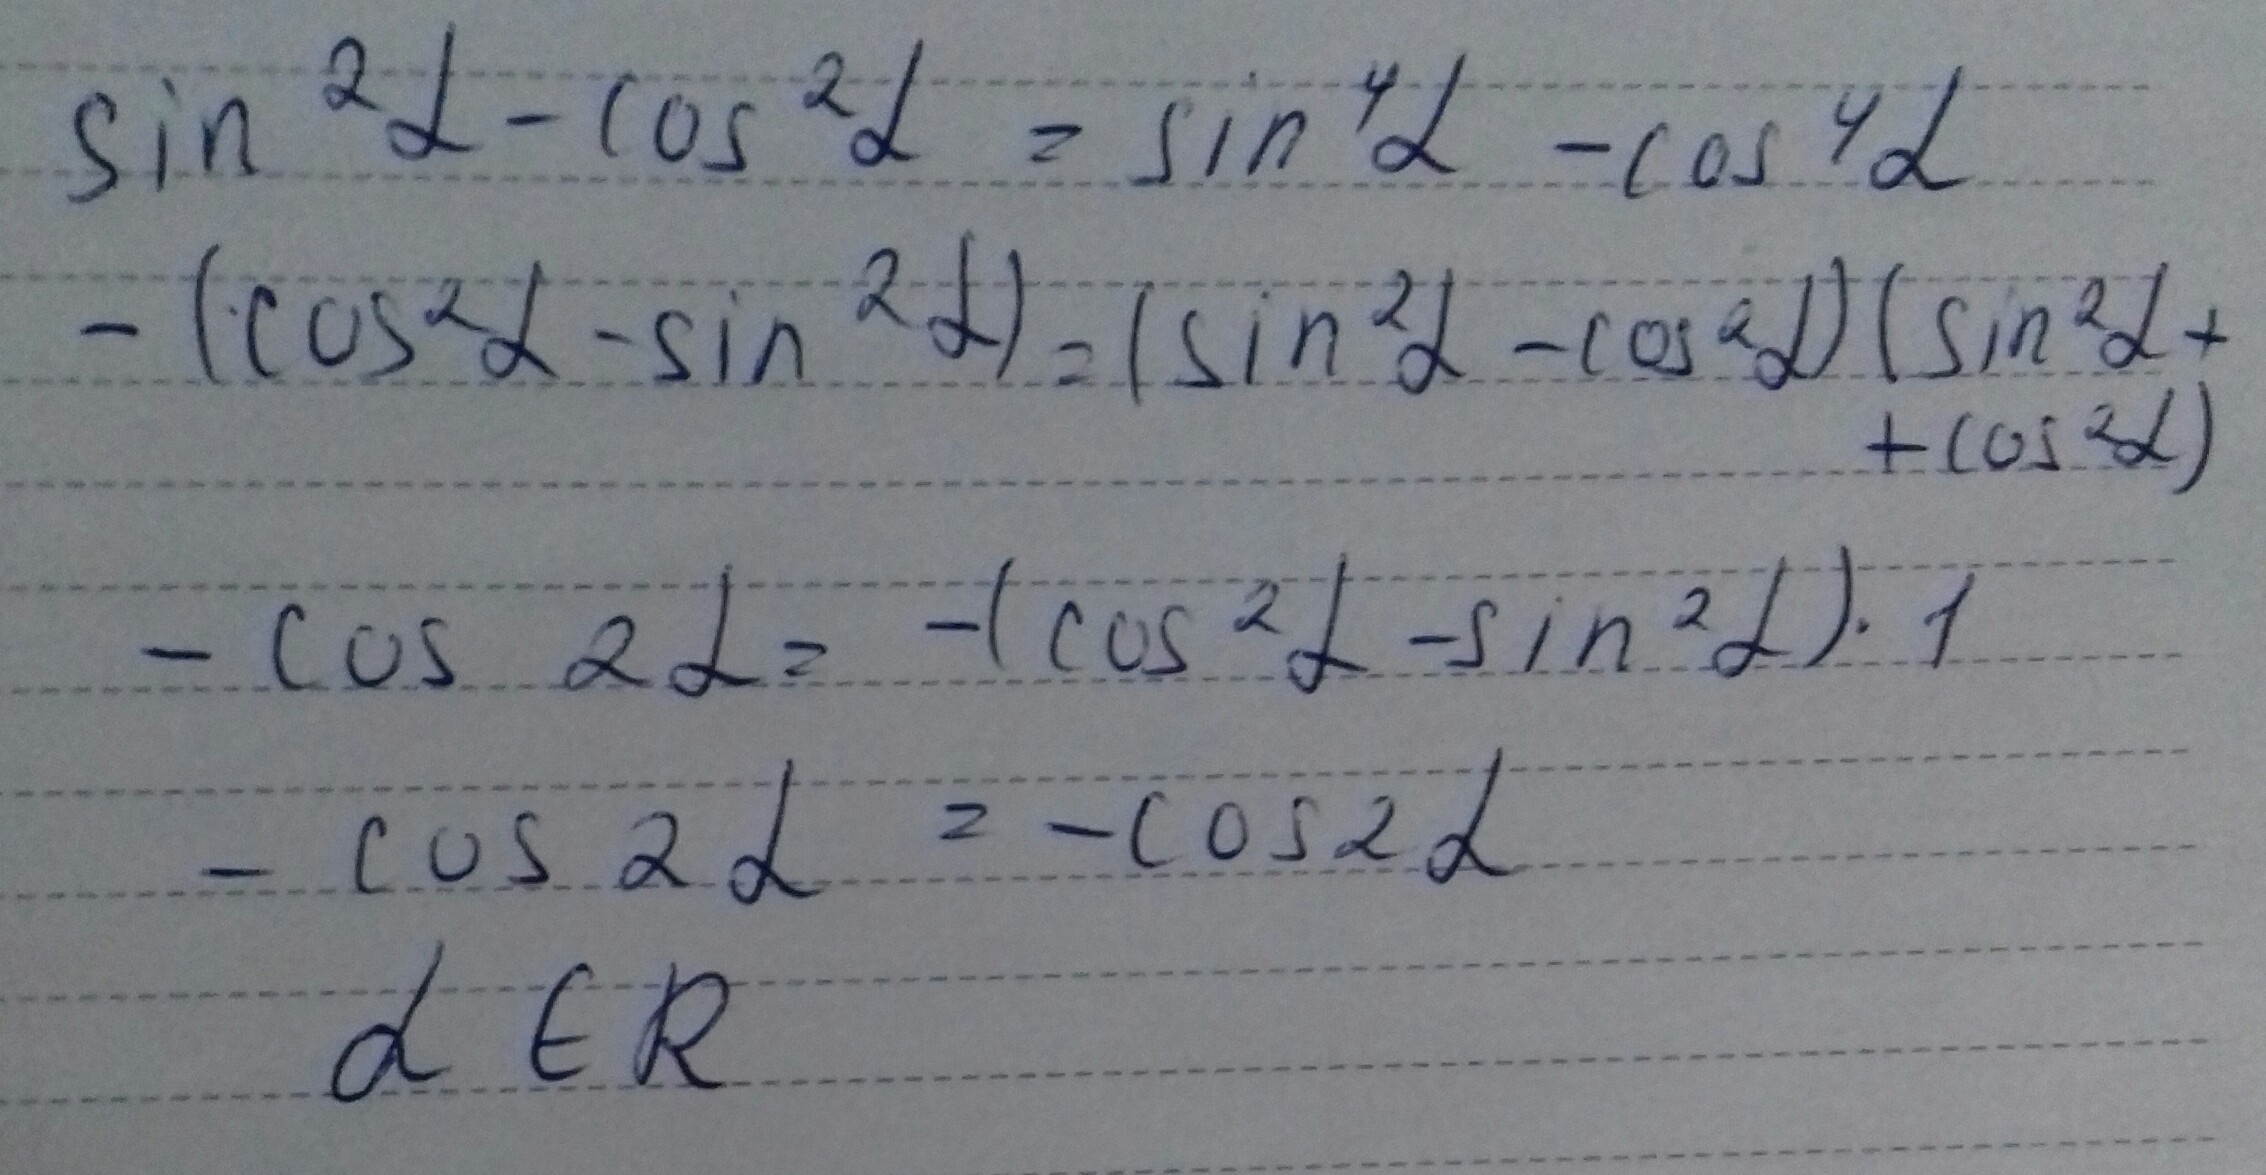 sin²α - cos²α = sin⁴α - cos⁴α
-(cos²α - sin²α) = (sin²α - cos²α)(sin²α +
+ cos²α)
- cos 2α = -(cos²α - sin²α) · 1
- cos 2α = - cos 2α
α ∈ R